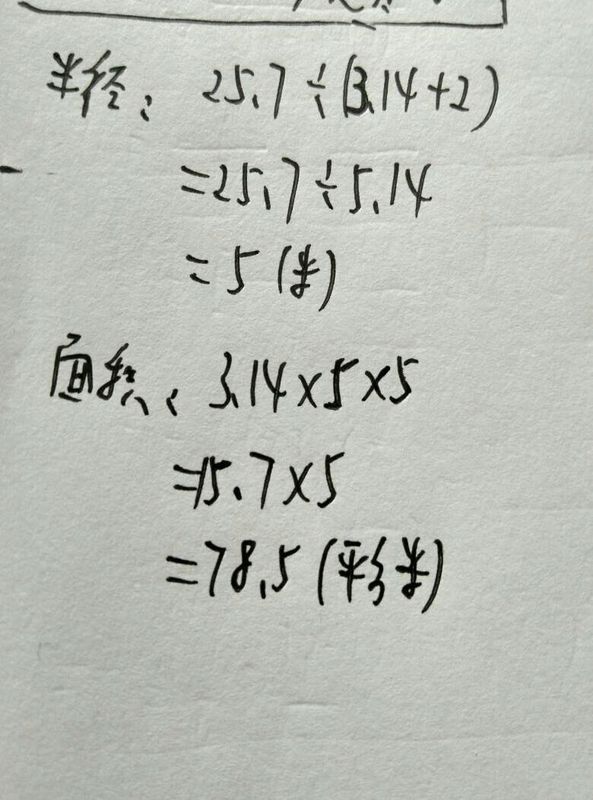 半径: 25.7÷(3.14+2)
=25.7÷5.14
=5(米)
面积: 3.14×5×5
=15.7×5
=78.5(平方米)